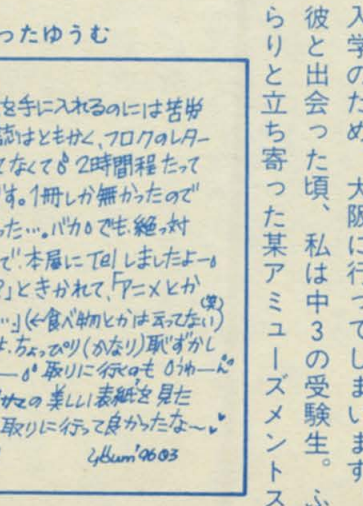 入学のため、大阪に行ってしまいます
彼と出会った頃、私は中3の受験生。ふ
らりと立ち寄った某アミューズメントス
ったゆうむ
を手に入れるのには苦労
誌はともかく、フロクのレター
てなくて 2時間程たって
す。1冊しか無かったので
った…。バカ。でも絶っ対
で本屋にTelしましたよー。
?」ときかれて、「アニメとか
…」(←食べ物とかは云ってない)(笑)
せ、ちょっぴり(かなり)恥ずかし
ー 取りに行くのも うわーん
の美しい表紙を見た
取りに行って良かったな〜。♥
'96 03